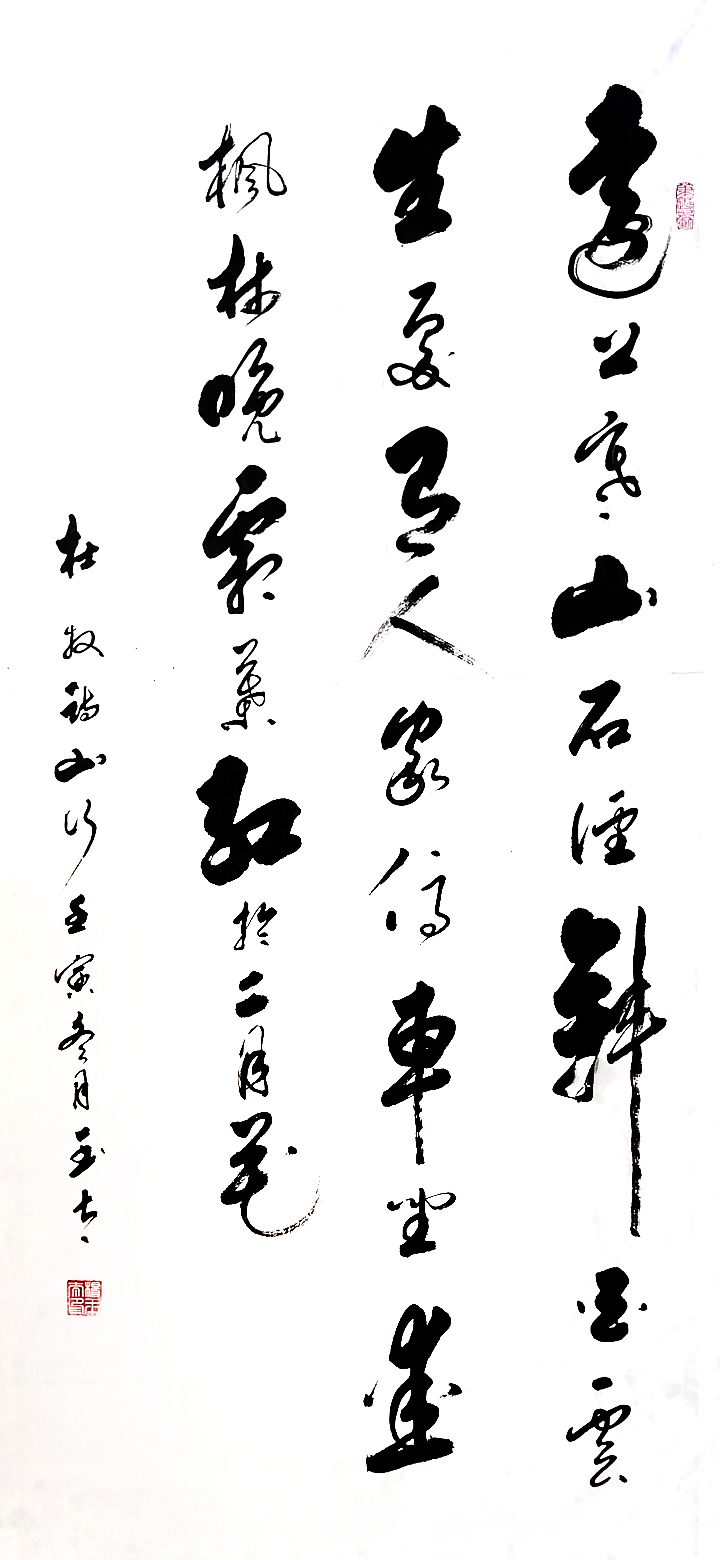 遠上寒山石徑斜白雲
生處有人家停車坐愛
楓林晚霜葉紅於二月花
杜牧詩山行壬寅冬月玉